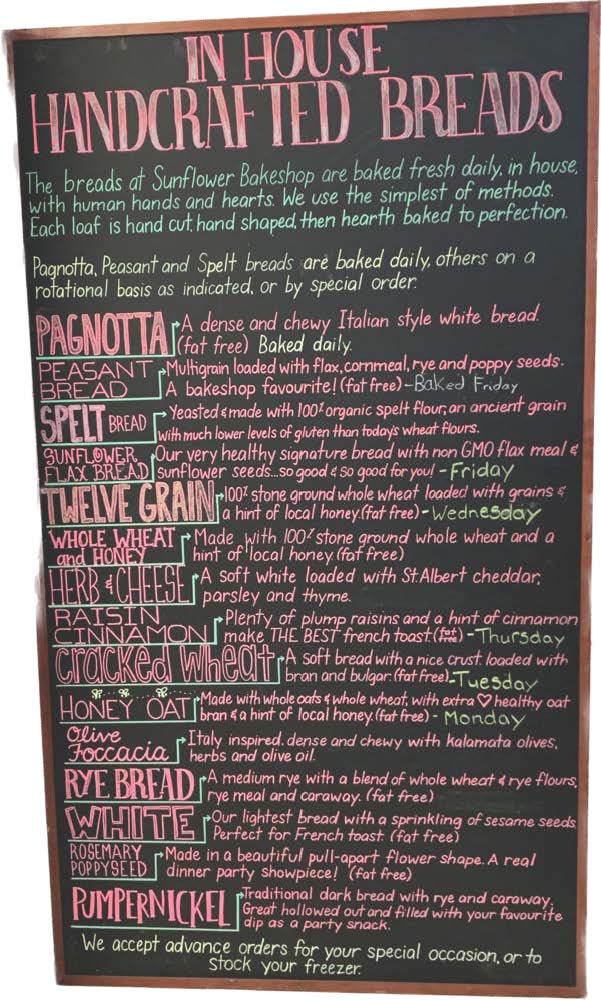 IN HOUSE
HANDCRAFTED BREADS
The breads at Sunflower Bakeshop are baked fresh daily, in house,
with human hands and hearts. We use the simplest of methods.
Each loaf is hand cut, hand shaped, then hearth baked to perfection.
Pagnotta, Peasant and Spelt breads are baked daily, others on a
rotational basis as indicated, or by special order.
PAGNOTTA A dense and chewy Italian style white bread.
(fat free) Baked daily.
PEASANT BREAD Multigrain loaded with flax, cornmeal, rye and poppy seeds.
A bakeshop favourite! (fat free) - Baked Friday
SPELT BREAD Yeasted & made with 100% organic spelt flour, an ancient grain
with much lower levels of gluten than today's wheat flours.
SUNFLOWER FLAX BREAD Our very healthy signature bread with non GMO flax meal &
sunflower seeds...so good & so good for you! - Friday
TWELVE GRAIN 100% stone ground whole wheat loaded with grains &
a hint of local honey. (fat free) - Wednesday
WHOLE WHEAT and HONEY Made with 100% stone ground whole wheat and a
hint of local honey (fat free)
HERB & CHEESE A soft white loaded with St.Albert cheddar,
parsley and thyme.
RAISIN CINNAMON Plenty of plump raisins and a hint of cinnamon
make THE BEST french toast. (fat free) - Thursday
Cracked Wheat A soft bread with a nice crust loaded with
bran and bulgar. (fat free) - Tuesday
HONEY OAT Made with whole oats & whole wheat, with extra ♡ healthy oat
bran & a hint of local honey. (fat free) - Monday
Olive Foccacia Italy inspired, dense and chewy with kalamata olives,
herbs and olive oil.
RYE BREAD A medium rye with a blend of whole wheat & rye flours,
rye meal and caraway. (fat free)
WHITE Our lightest bread with a sprinkling of sesame seeds.
Perfect for French toast. (fat free)
ROSEMARY POPPYSEED Made in a beautiful pull-apart flower shape. A real
dinner party showpiece! (fat free)
PUMPERNICKEL Traditional dark bread with rye and caraway.
Great hollowed out and filled with your favourite
dip as a party snack.
We accept advance orders for your special occasion, or to
stock your freezer.